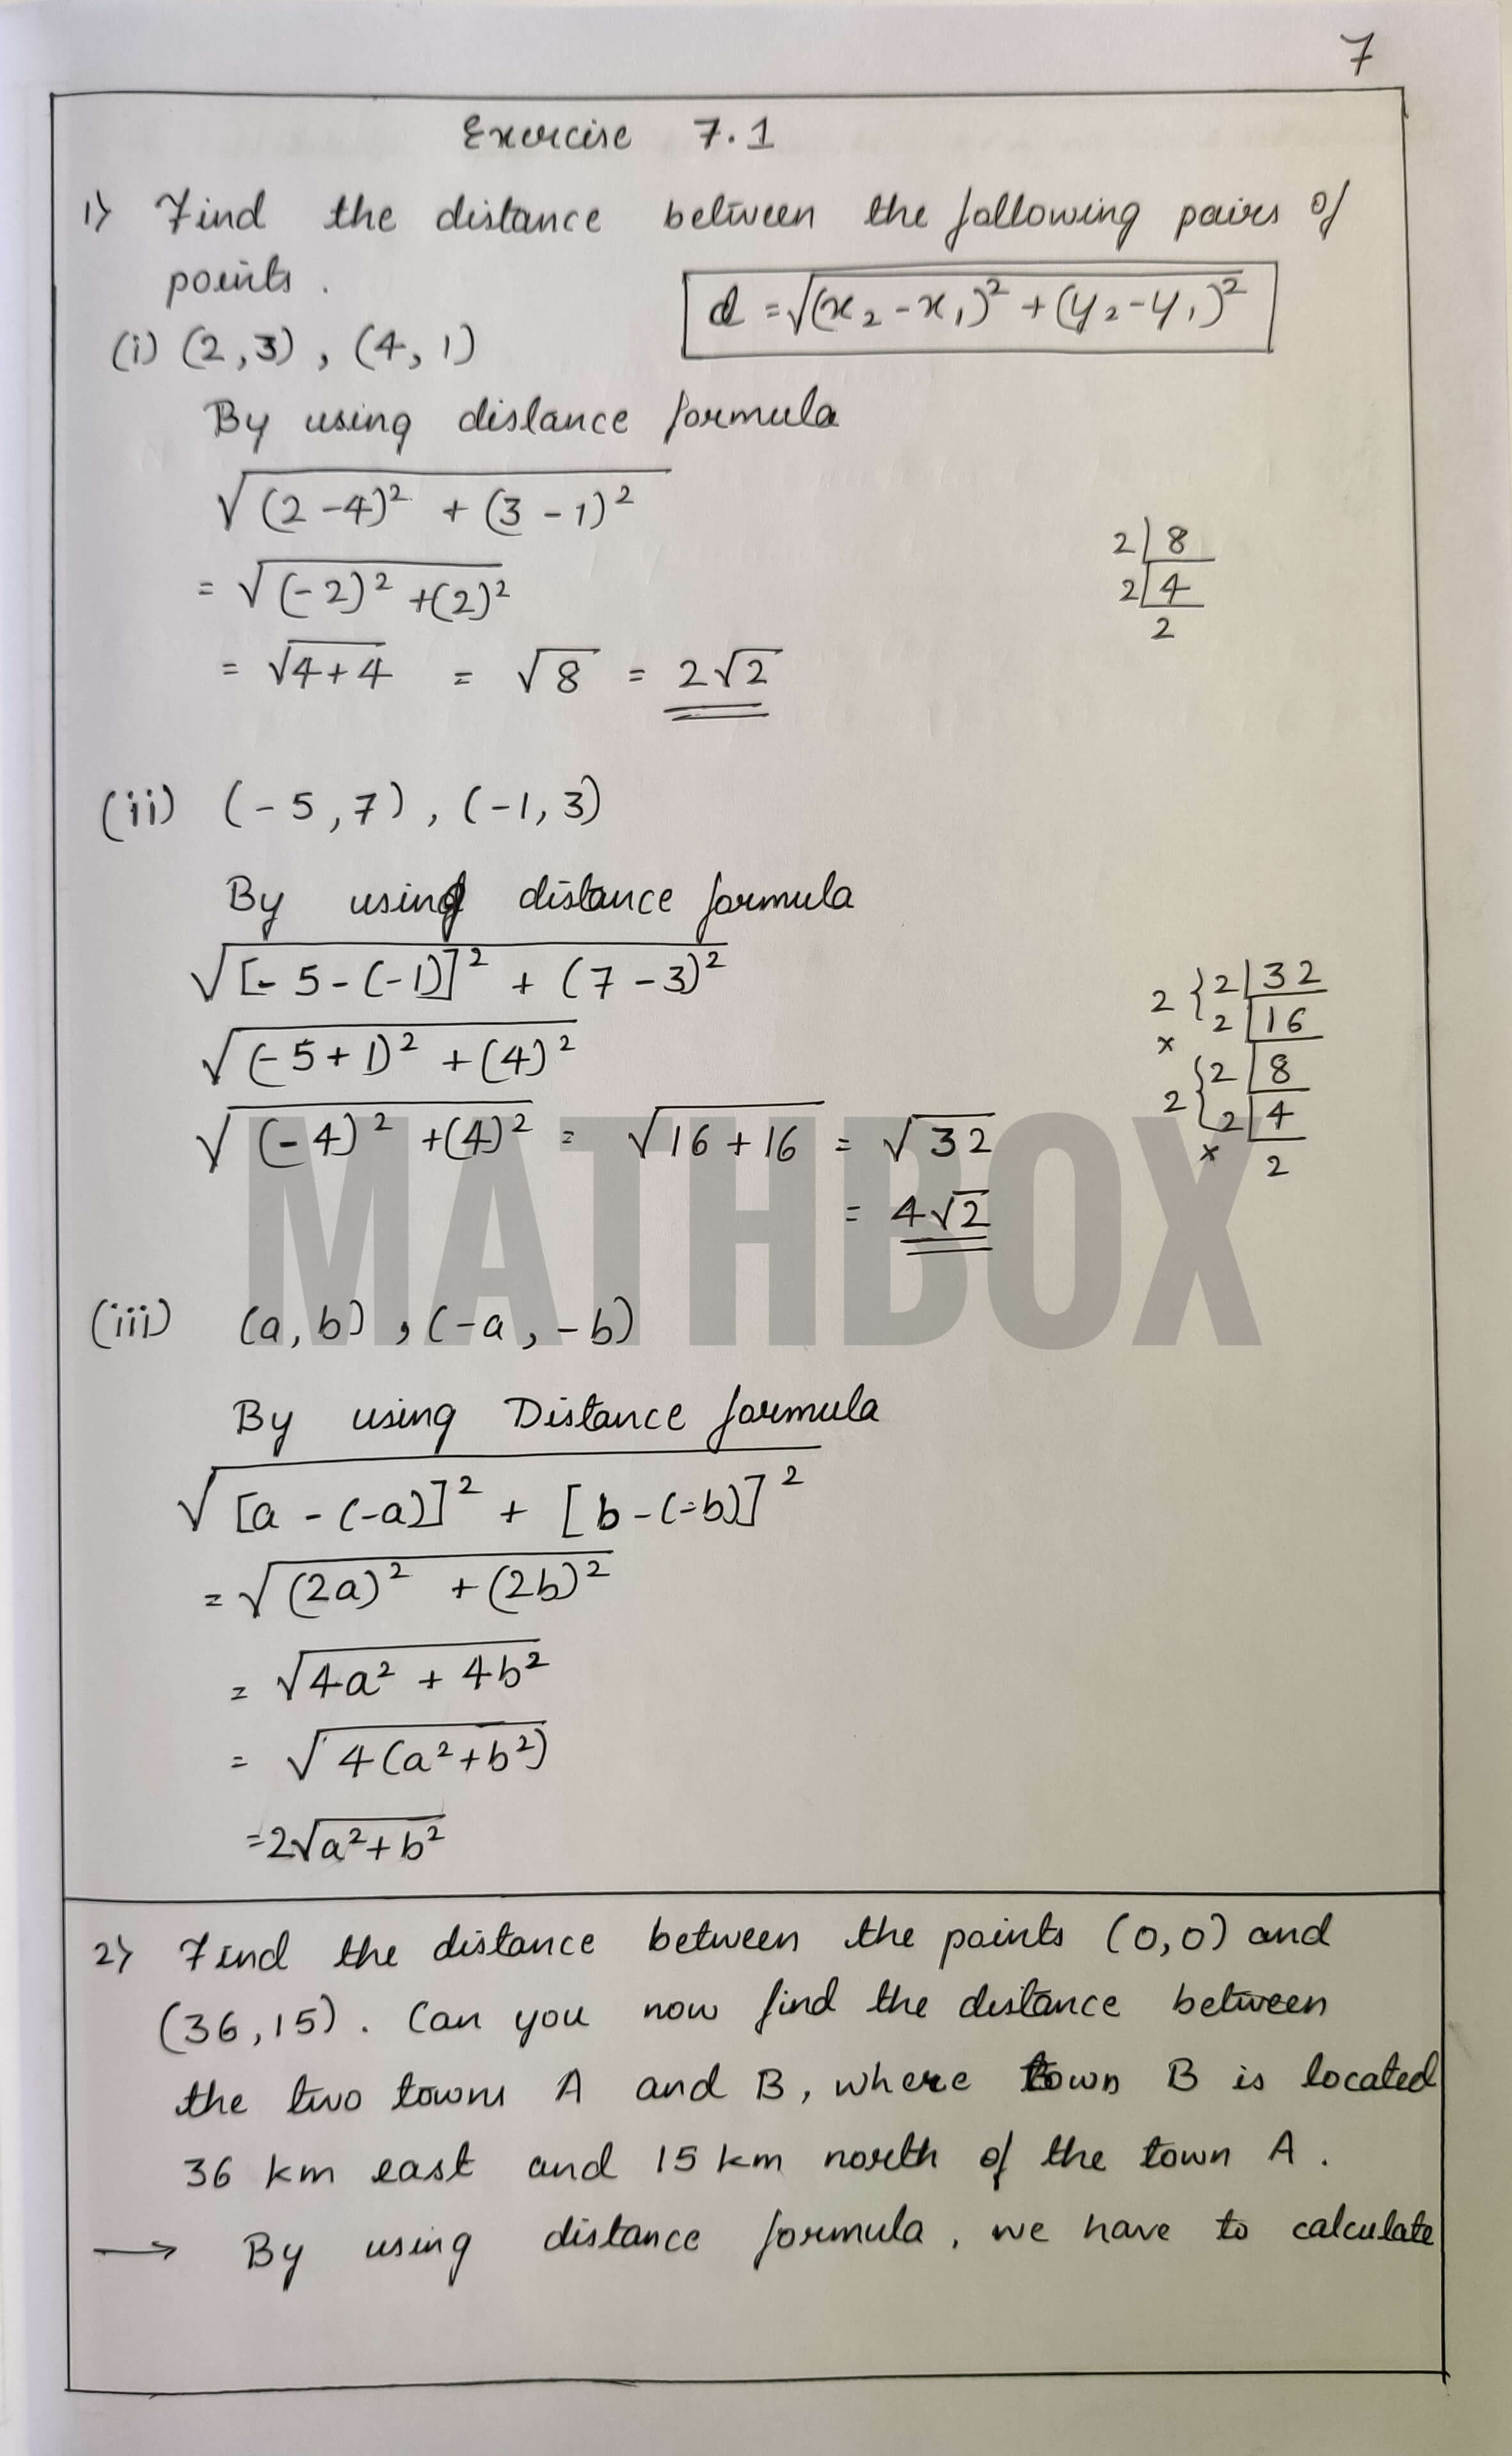 7
Exercise 7.1
1) Find the distance between the following pairs of
points.
d = √(x₂ - x₁)² + (y₂ - y₁)²
(i) (2,3), (4,1)
By using distance formula
√(2-4)² + (3-1)²
= √(-2)² + (2)²
= √4+4 = √8 = 2√2
2|8
2|4
2
(ii) (-5,7), (-1,3)
By using distance formula
√[-5-(-1)]² + (7-3)²
√(-5+1)² + (4)²
√(-4)² + (4)² = √16+16 = √32
= 4√2
2 { 2|32
× 2|16
2 { 2|8
2|4
× 2
MATHBOX
(iii) (a,b), (-a,-b)
By using Distance formula
√[a-(-a)]² + [b-(-b)]²
= √(2a)² + (2b)²
= √4a² + 4b²
= √4(a²+b²)
= 2√a²+b²
2) Find the distance between the points (0,0) and
(36,15). Can you now find the distance between
the two towns A and B, where town B is located
36 km east and 15 km north of the town A.
→ By using distance formula, we have to calculate